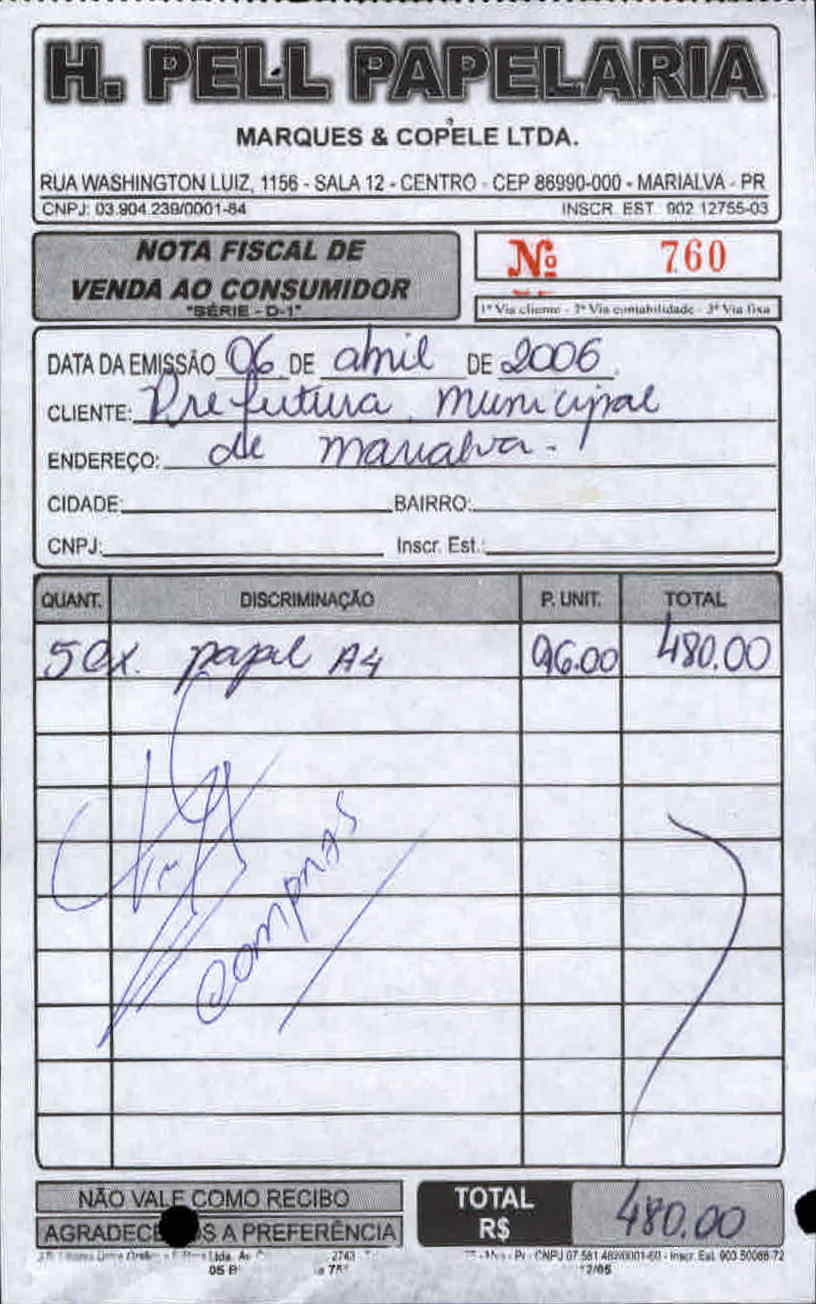 H. PELL PAPELARIA
MARQUES & COPELE LTDA.
RUA WASHINGTON LUIZ, 1156 - SALA 12 - CENTRO - CEP 86990-000 - MARIALVA - PR
CNPJ: 03.904.239/0001-84 INSCR. EST. 902.12755-03
NOTA FISCAL DE
VENDA AO CONSUMIDOR
"SÉRIE - D-1"
Nº 760
1ª Via cliente - 2ª Via contabilidade - 3ª Via fixa
DATA DA EMISSÃO 06 DE abril DE 2006
CLIENTE: Prefeitura Municipal
ENDEREÇO: de Marialva.
CIDADE: BAIRRO:
CNPJ: Inscr. Est.:
QUANT. DISCRIMINAÇÃO P. UNIT. TOTAL
5 cx. papel A4 96.00 480.00
compras
NÃO VALE COMO RECIBO
AGRADECE S A PREFERÊNCIA
TOTAL
R$ 480.00